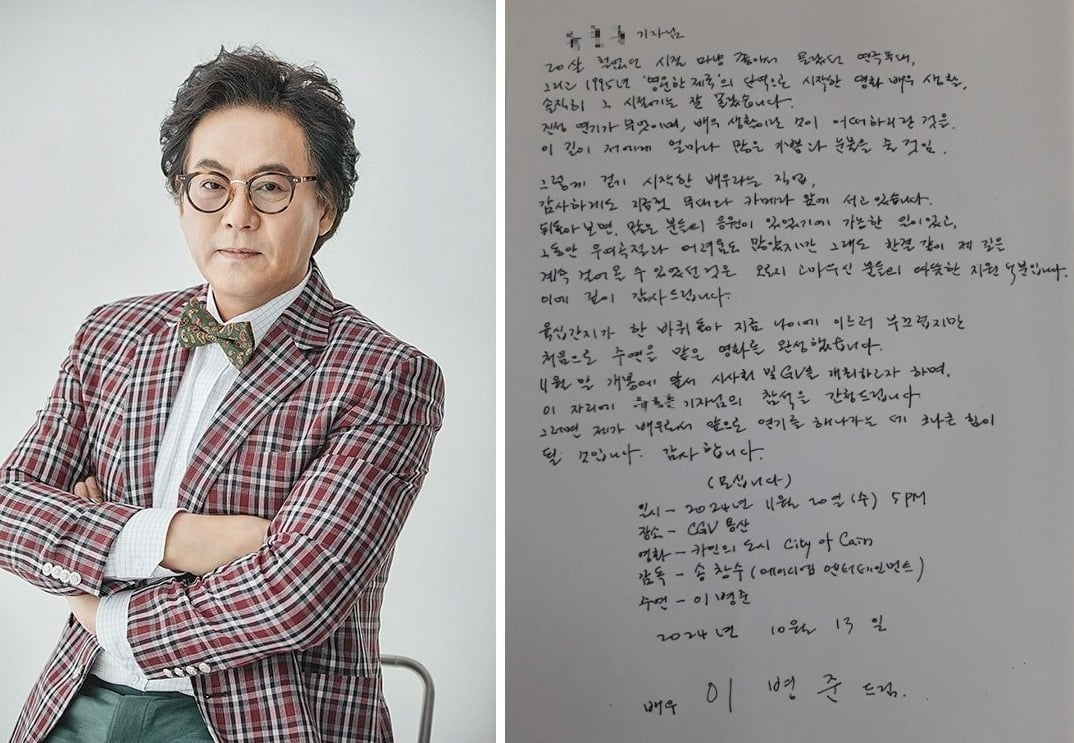 기자님
20살 철없던 시절 마냥 좋아서 올랐던 연극무대,
그리고 1995년 '영원한 제국'의 단역으로 시작한 영화 배우 생활,
솔직히 그 시절에는 잘 몰랐습니다.
진정 연기가 무엇이며, 배우 생활이란 것이 어떠하리란 것은.
이 길이 저에게 얼마나 많은 기쁨과 눈물을 줄 것인.
그렇게 걷기 시작한 배우라는 직업,
감사하게도 지금껏 무대와 카메라 앞에 서고 있습니다.
뒤돌아보면, 많은 분들의 응원이 있었기에 가능한 일이었고,
그동안 우여곡절과 어려움도 많았지만 그래도 한결 같이 제 길은
계속 걸어올 수 있었던 것은 오로지 고마우신 분들의 따뜻한 지원 덕분입니다.
이에 깊이 감사드립니다.
육십간지가 한 바퀴 돌아 지금 나이에 이르러 부끄럽지만
처음으로 주연을 맡은 영화를 완성했습니다.
11월 말 개봉에 앞서 시사회 및 GV를 개최하고자 하며,
이 자리에 기자님의 참석을 간청드립니다
그러면 제가 배우로서 앞으로 연기를 해나가는 데 크나큰 힘이
될 것입니다. 감사합니다.
(모십니다)
일시 - 2024년 11월 20일 (수) 5PM
장소 - CGV 용산
영화 - 카인의 도시 City of Cain
감독 - 송창수 (에이디앱 엔터테인먼트)
주연 - 이병준
2024년 10월 13일
배우 이병준 드림.